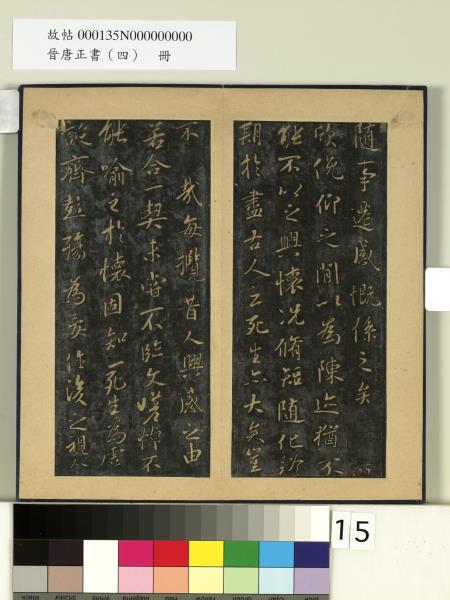 故帖 000135N000000000
晉唐正書（四） 冊
隨事遷感慨係之矣
欣俛仰之閒以為陳迹猶不
能不以之興懷況脩短隨化終
期於盡古人云死生亦大矣豈
不 哉每攬昔人興感之由
若合一契未嘗不臨文嗟悼不
能喻之於懷固知一死生為虛
誕齊彭殤為妄作後之視今
15